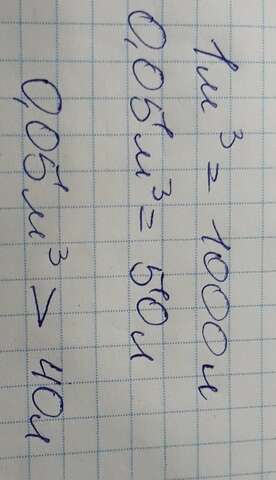 1м³ = 1000л
0,05м³ = 50л
0,05м³ > 40л